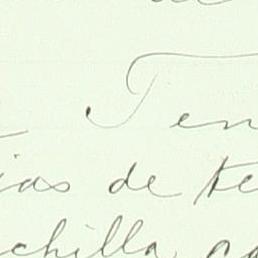 Ten
ias de te
chilla